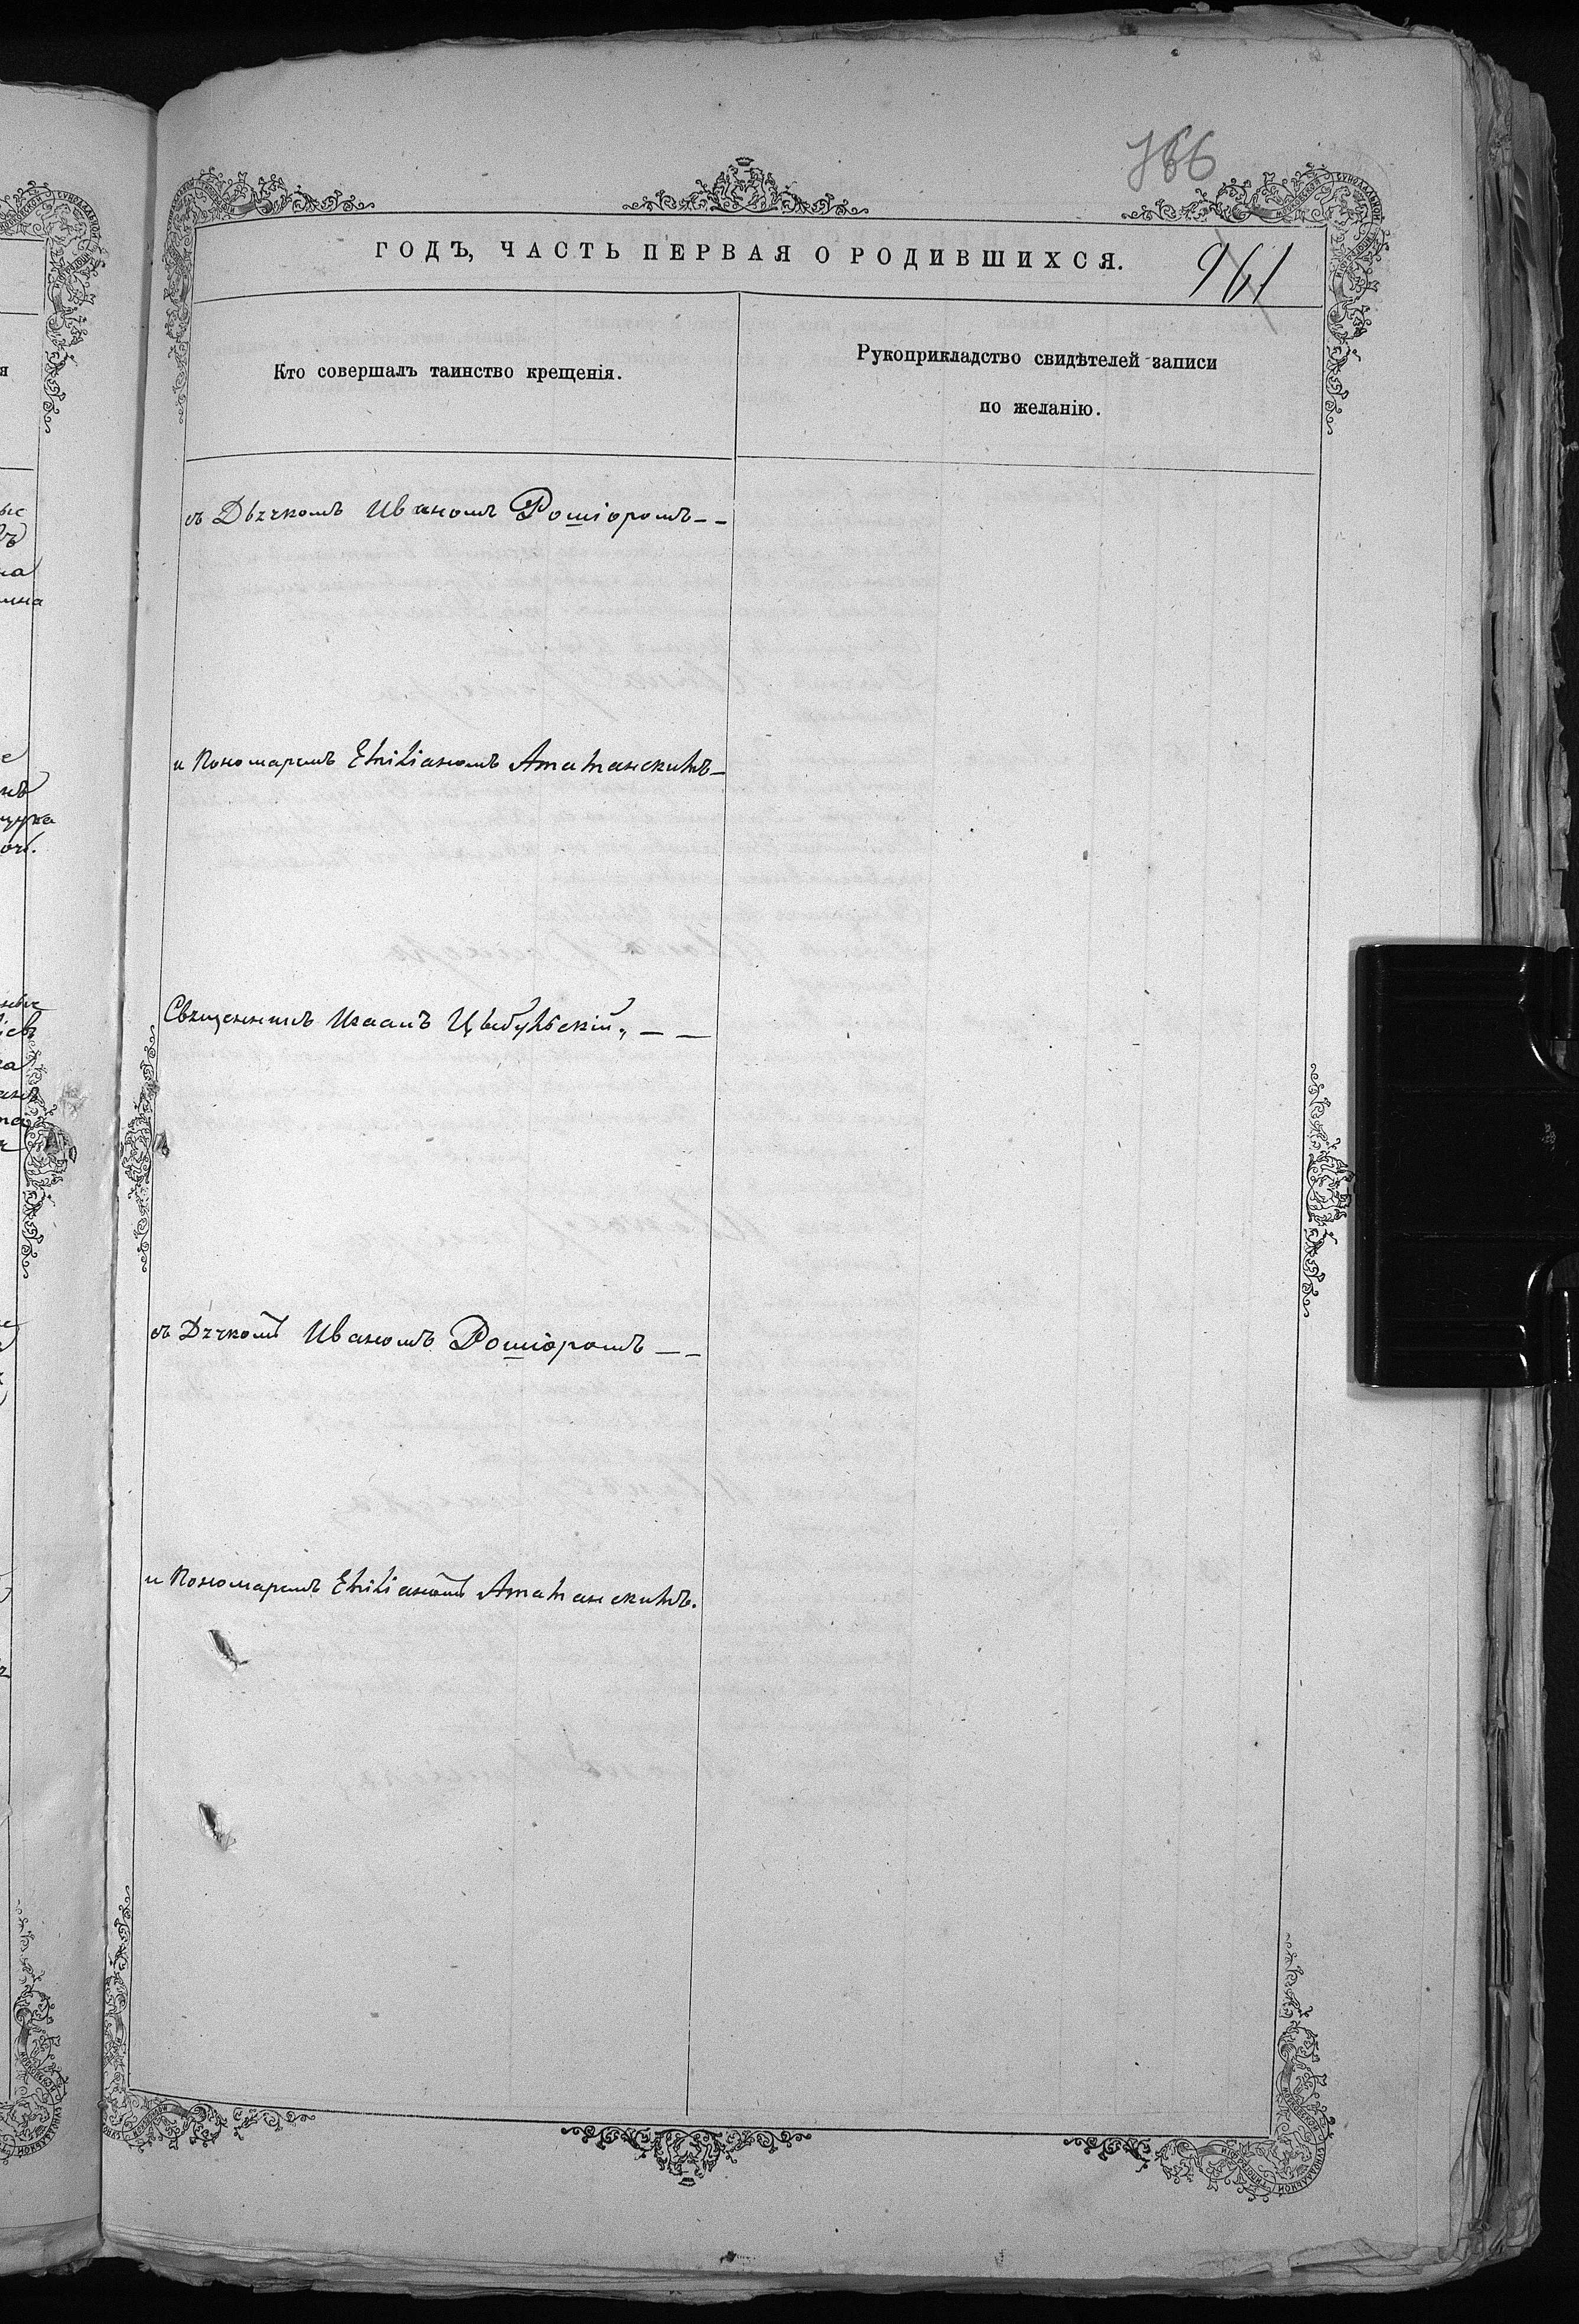 766
ГОДЪ, ЧАСТЬ ПЕРВАЯ О РОДИВШИХСЯ.
961
Кто совершалъ таинство крещенія.
Рукоприкладство свидѣтелей записи
по желанію.
съ Дьячкомъ Иваномъ Рошіоромъ - -
и Пономаремъ Емиліаномъ Аматанскимъ -
Священникъ Исаакъ Цыбульскій, - -
съ Дячкомъ Иваномъ Рошіоромъ - -
и Пономаремъ Емиліаномъ Аматанскимъ.